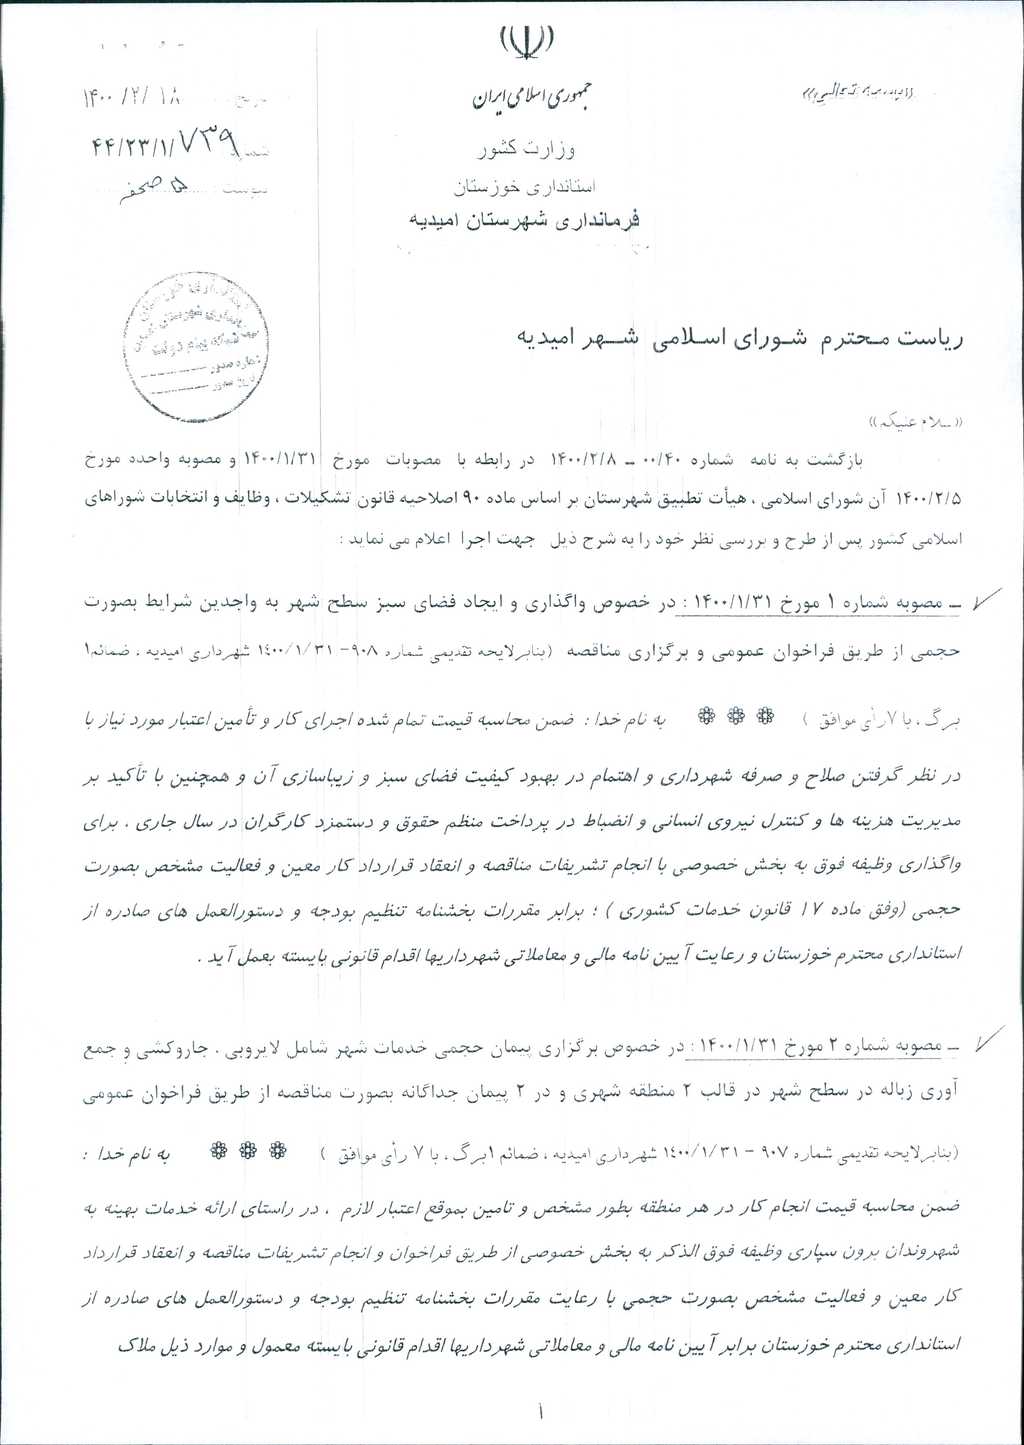 «بسمه تعالی»
جمهوری اسلامی ایران
وزارت کشور
استانداری خوزستان
فرمانداری شهرستان امیدیه
۱۴۰۰/۲/۱۸
شماره ۴۴/۲۳/۱/۷۳۹
پیوست ۵ صفحه
ریاست محترم شورای اسلامی شهر امیدیه
«سلام علیکم»
بازگشت به نامه شماره ۰۰/۴۰ – ۱۴۰۰/۲/۸ در رابطه با مصوبات مورخ ۱۴۰۰/۱/۳۱ و مصوبه واحده مورخ
۱۴۰۰/۲/۵ آن شورای اسلامی ، هیأت تطبیق شهرستان بر اساس ماده ۹۰ اصلاحیه قانون تشکیلات ، وظایف و انتخابات شوراهای
اسلامی کشور پس از طرح و بررسی نظر خود را به شرح ذیل جهت اجرا اعلام می نماید :
– مصوبه شماره ۱ مورخ ۱۴۰۰/۱/۳۱ : در خصوص واگذاری و ایجاد فضای سبز سطح شهر به واجدین شرایط بصورت
حجمی از طریق فراخوان عمومی و برگزاری مناقصه (بنابر لایحه تقدیمی شماره ۹۰۸– ۱۴۰۰/۱/۳۱ شهرداری امیدیه ، ضمائم ۱
برگ ، با ۷ رأی موافق ) ❁ ❁ ❁ به نام خدا : ضمن محاسبه قیمت تمام شده اجرای کار و تأمین اعتبار مورد نیاز با
در نظر گرفتن صلاح و صرفه شهرداری و اهتمام در بهبود کیفیت فضای سبز و زیباسازی آن و همچنین با تأکید بر
مدیریت هزینه ها و کنترل نیروی انسانی و انضباط در پرداخت منظم حقوق و دستمزد کارگران در سال جاری ، برای
واگذاری وظیفه فوق به بخش خصوصی با انجام تشریفات مناقصه و انعقاد قرارداد کار معین و فعالیت مشخص بصورت
حجمی (وفق ماده ۱۷ قانون خدمات کشوری ) ؛ برابر مقررات بخشنامه تنظیم بودجه و دستورالعمل های صادره از
استانداری محترم خوزستان و رعایت آیین نامه مالی و معاملاتی شهرداریها اقدام قانونی بایسته بعمل آید .
– مصوبه شماره ۲ مورخ ۱۴۰۰/۱/۳۱ : در خصوص برگزاری پیمان حجمی خدمات شهر شامل لایروبی ، جاروکشی و جمع
آوری زباله در سطح شهر در قالب ۲ منطقه شهری و در ۲ پیمان جداگانه بصورت مناقصه از طریق فراخوان عمومی
(بنابر لایحه تقدیمی شماره ۹۰۷ – ۱۴۰۰/۱/۳۱ شهرداری امیدیه ، ضمائم ۱ برگ ، با ۷ رأی موافق ) ❁ ❁ ❁ به نام خدا :
ضمن محاسبه قیمت انجام کار در هر منطقه بطور مشخص و تامین بموقع اعتبار لازم ، در راستای ارائه خدمات بهینه به
شهروندان برون سپاری وظیفه فوق الذکر به بخش خصوصی از طریق فراخوان و انجام تشریفات مناقصه و انعقاد قرارداد
کار معین و فعالیت مشخص بصورت حجمی با رعایت مقررات بخشنامه تنظیم بودجه و دستورالعمل های صادره از
استانداری محترم خوزستان برابر آیین نامه مالی و معاملاتی شهرداریها اقدام قانونی بایسته معمول و موارد ذیل ملاک
۱